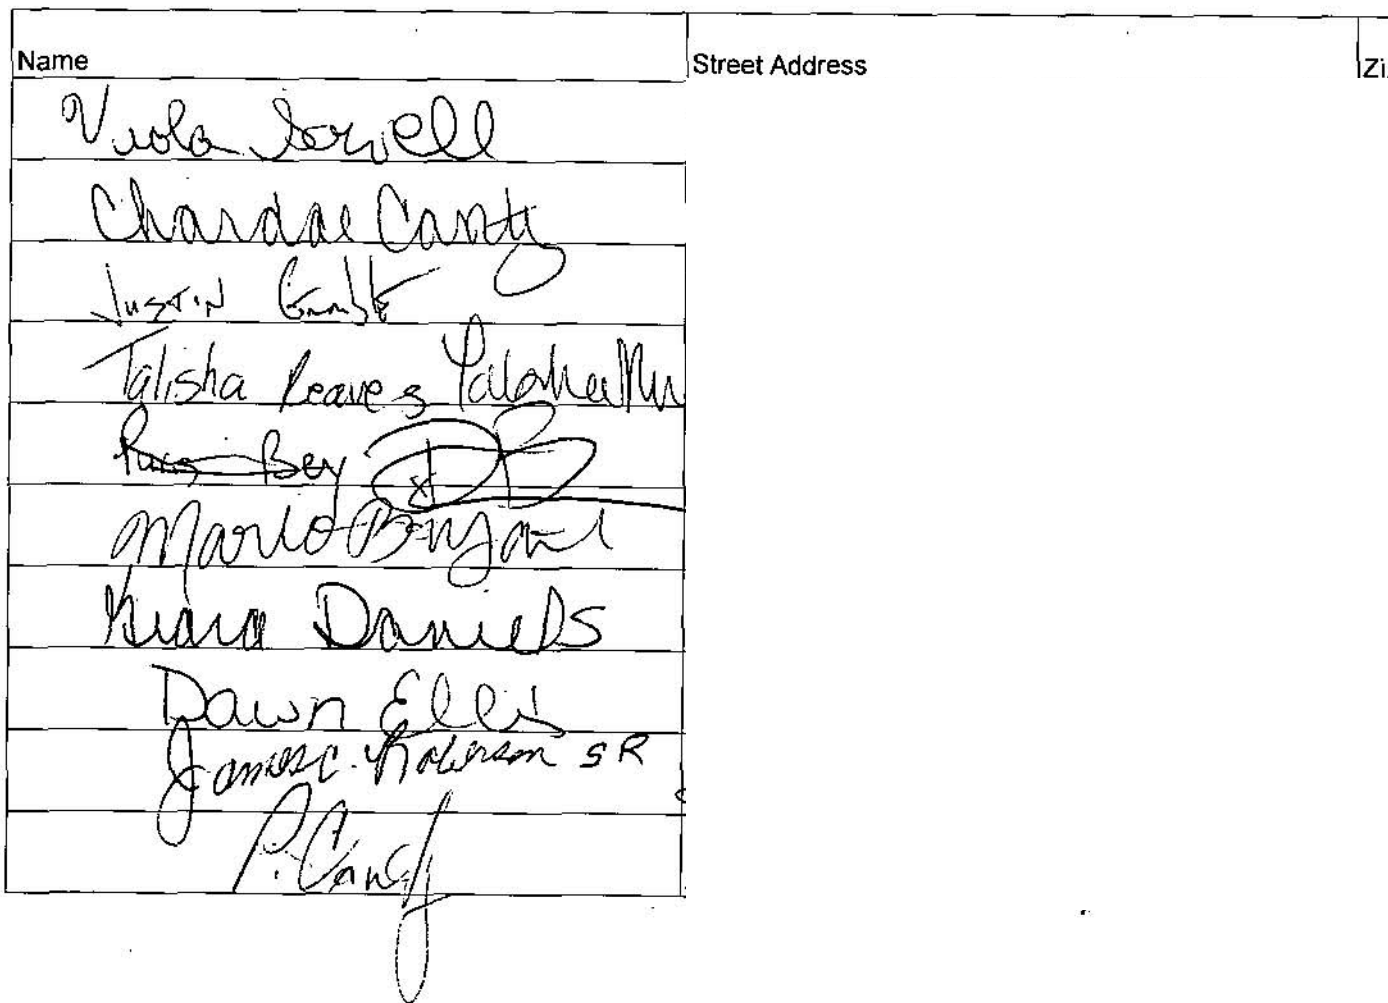 Name Street Address Zi
Viola
Chardae Canty
Justin
Talisha Reaves
Bey
Mario
Kiara Daniels
Dawn Ellis
James C. Roberson SR
P. Canty